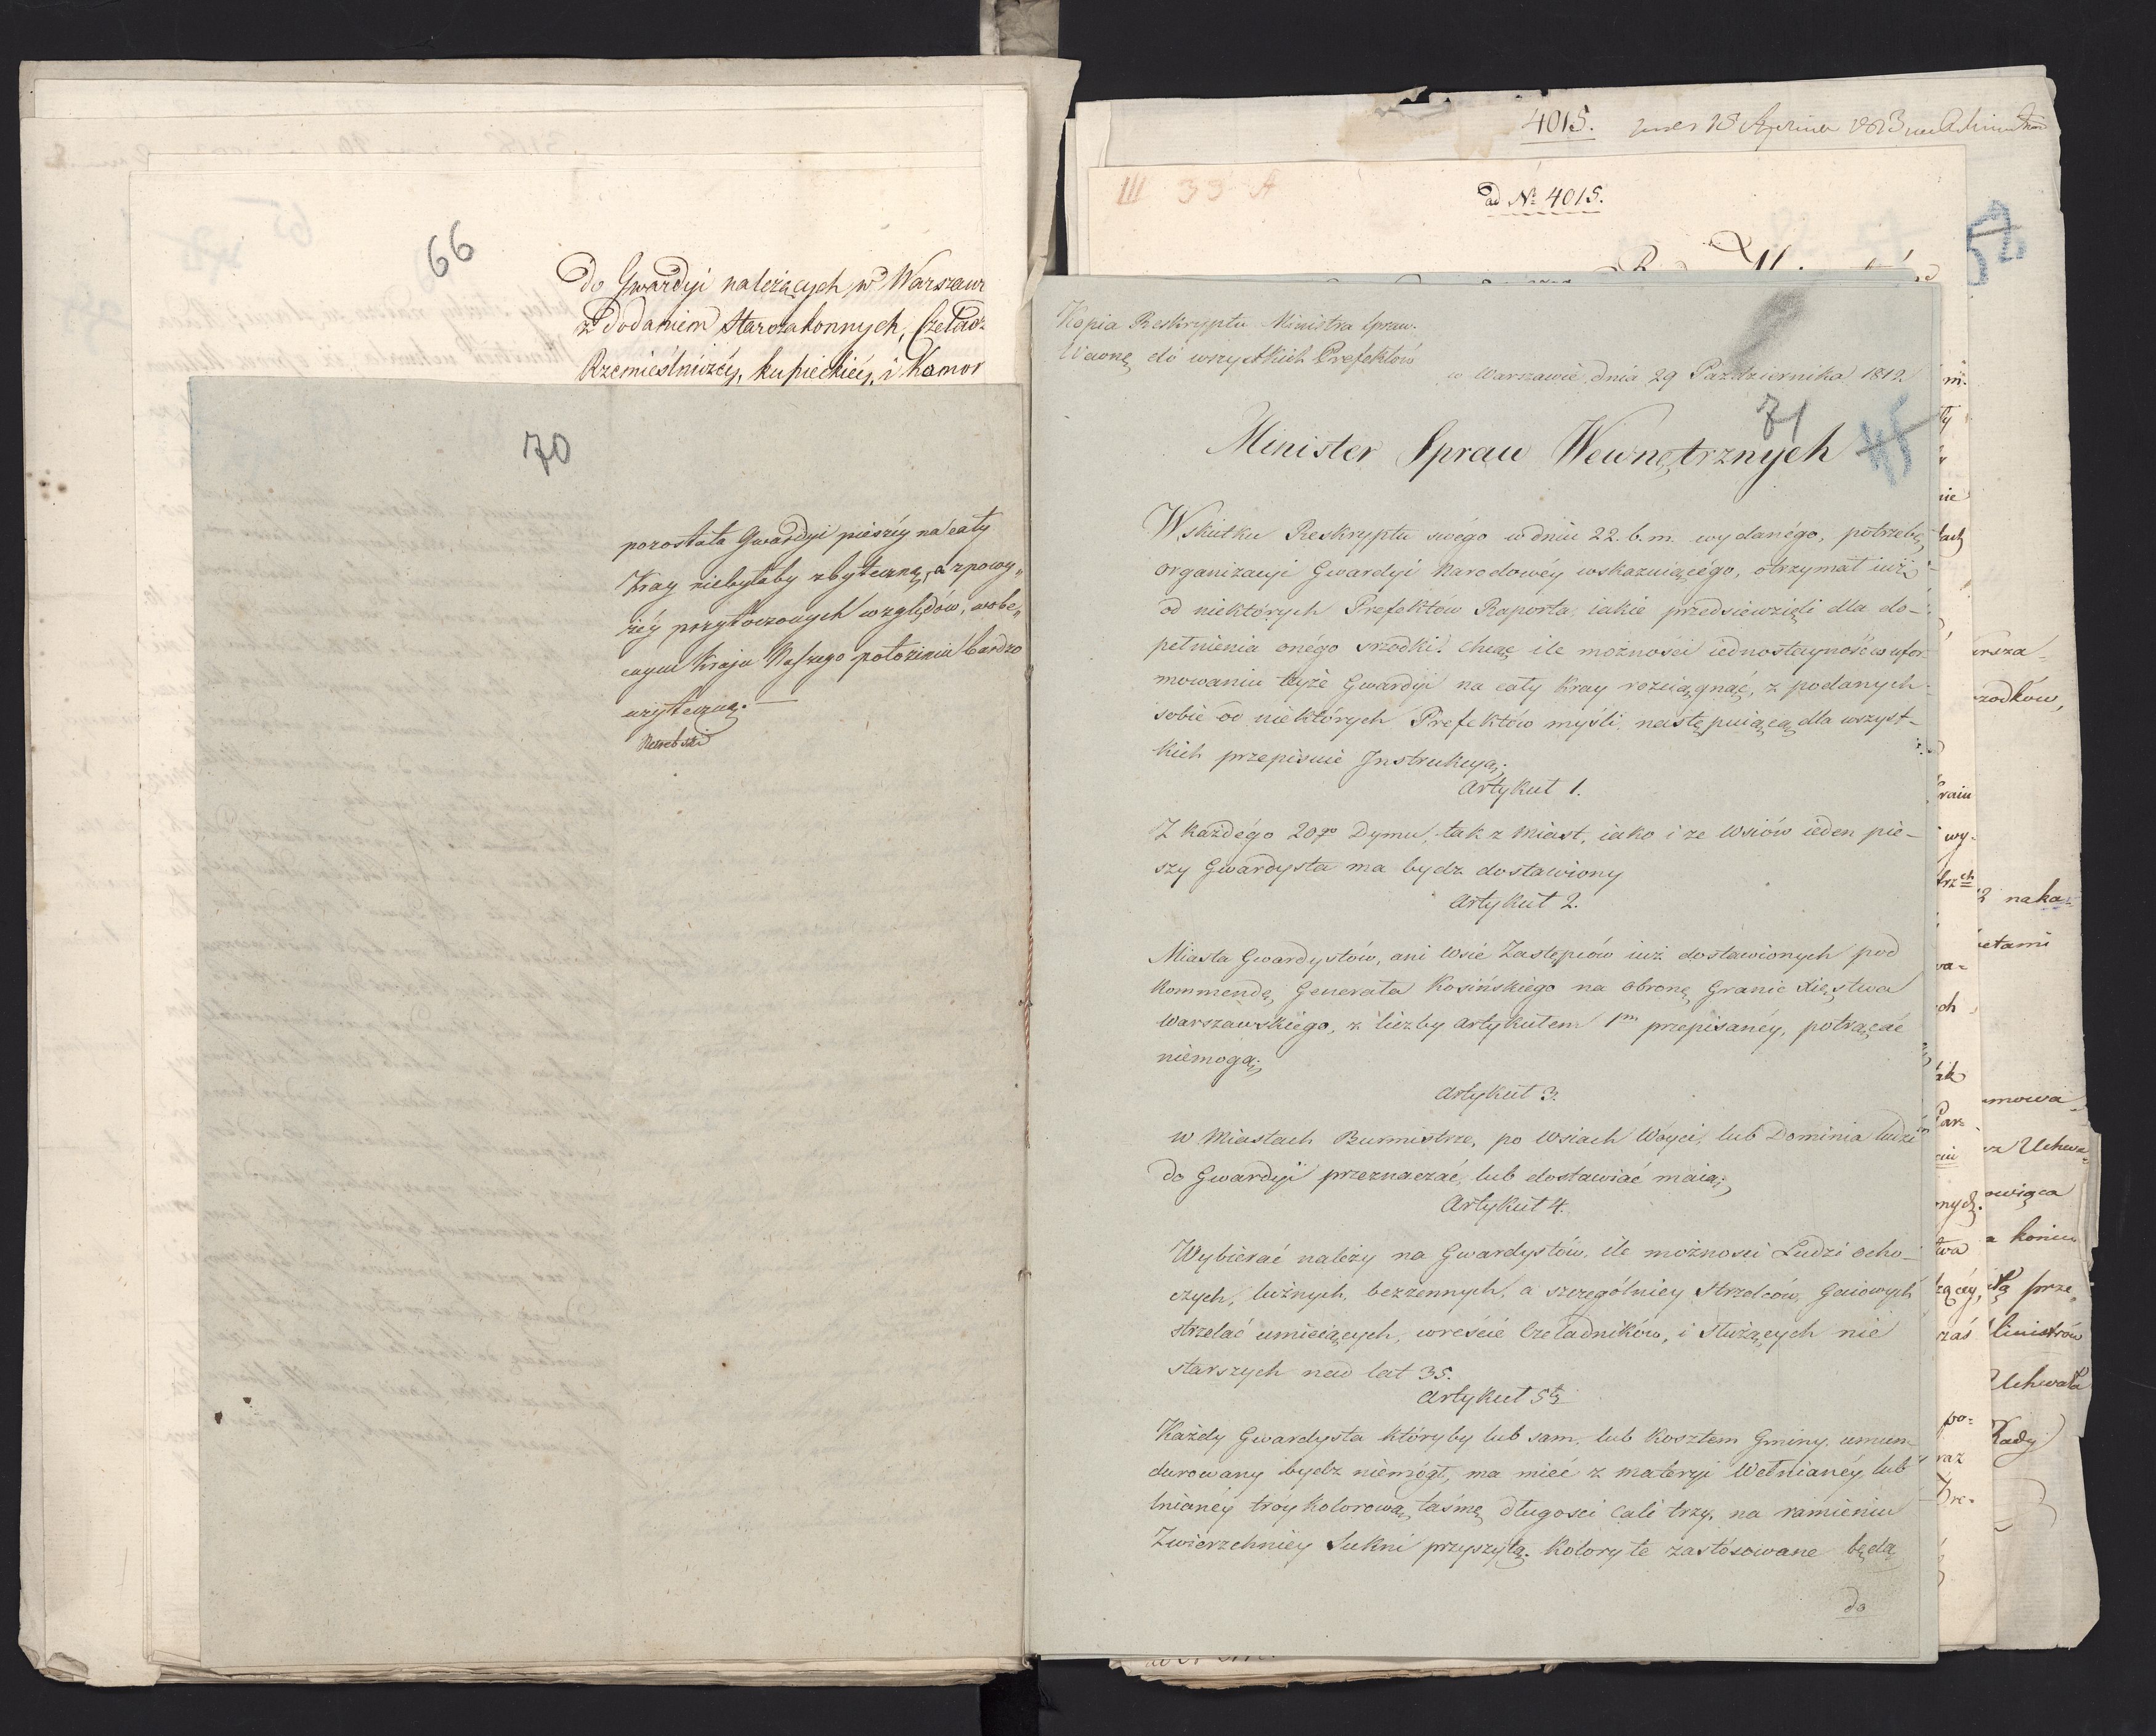 66
Do Gwardyi należących w Warszaw
z dodaniem Starozakonnych, Czeladź
Rzemieślniczéy, kupieckiéy, i Komor
70
pozostała Gwardyi pieszéy na cały
Kray niebyłaby zbyteczną, a z powy„
żéy przytoczonych względów, w obe„
cnym Kraju Naszego położeniu bardzo
użyteczną. —
4015.
III 39 A
ad Nº 4015.
Kopia Reskryptu Ministra Spraw.
Wewnę do wszystkich Prefektów
w Warszawie, dnia 29 Października 1812.
71
45
Minister Spraw Wewnętrznych
W skutku Reskryptu swégo w dniu 22. b. m. wydanégo, potrzebę
organizacyi Gwardyi Narodowéy wskazuiącégo, otrzymał iuż
od niektórych Prefektów Raporta, iakie przedsiewzięli dla do-
pełnienia onégo srzodki. Chcąc ile możności iednostayność w ufor-
mowaniu teyże Gwardyi na cały Kray rozciągnąć, z podanych
sobie od niektórych Prefektów myśli, następuiącą dla wszyst-
kich przepisuie Instrukcyą;
Artykuł 1.
Z każdégo 20go Dymu, tak z Miast, iako i ze Wsiów ieden pie-
szy Gwardysta ma bydz dostawiony
Artykuł 2.
Miasta Gwardystów, ani Wsie Zastępców iuż dostawionych pod
Kommendę Generała Kosińskiego na obronę Granic Xięstwa
Warszawskiego, z liczby artykułem 1m przepisanéy, potrącać
niemogą;
Artykuł 3.
w Miastach Burmistrze, po Wsiach Woyci, lub Dominia ludzi
do Gwardyi przeznaczać, lub dostawiać maią;
Artykuł 4.
Wybierać należy na Gwardystów, ile możności Ludzi ocho-
czych, luźnych, bezżennych, a szczególniey Strzelców, Gaiowych
strzelać umieiących, wreście Czeladników, i Służących nie
starszych nad lat 35.
Artykuł 5ty
Każdy Gwardysta któryby lub sam, lub Kosztem Gminy, umun-
durowany bydz niemógł, ma mieć z materyi Wełnianéy, lub
lnianéy tróykolorową taśmę długości Cali trzy, na ramieniu
Zwierzchniey Sukni przyszytą. Kolory te zastósowane będą
do